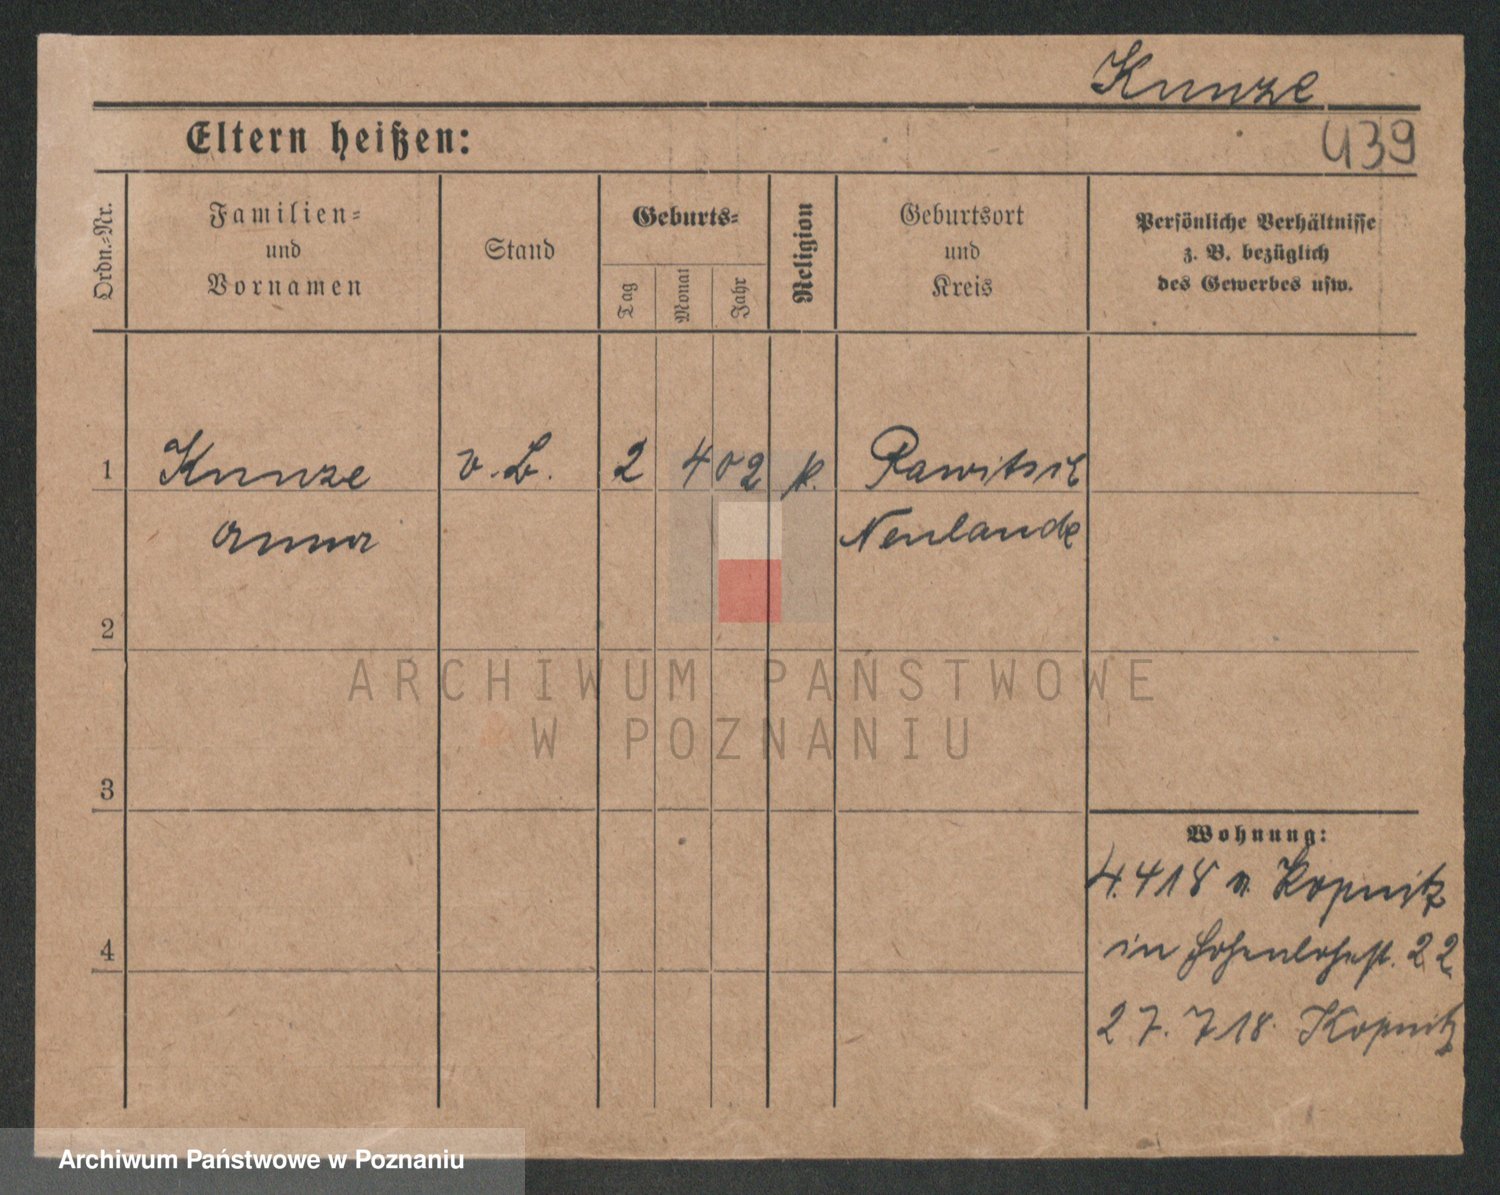 Kunze
439
Eltern heißen:
Ordn.=Nr.
Familien=
und
Vornamen
Stand
Geburts=
Tag
Monat
Jahr
Religion
Geburtsort
und
Kreis
Persönliche Verhältnisse
z. B. bezüglich
des Gewerbes usw.
1 Kunze v. L. 2 4 02 k. Rawitsch
Anna Neulande
2
ARCHIWUM PAŃSTWOWE
W POZNANIU
3
Wohnung:
4.4 18 v. Kopnitz
4
in Hohenlohestr. 22
27. 7 18. Kopnitz
Archiwum Państwowe w Poznaniu